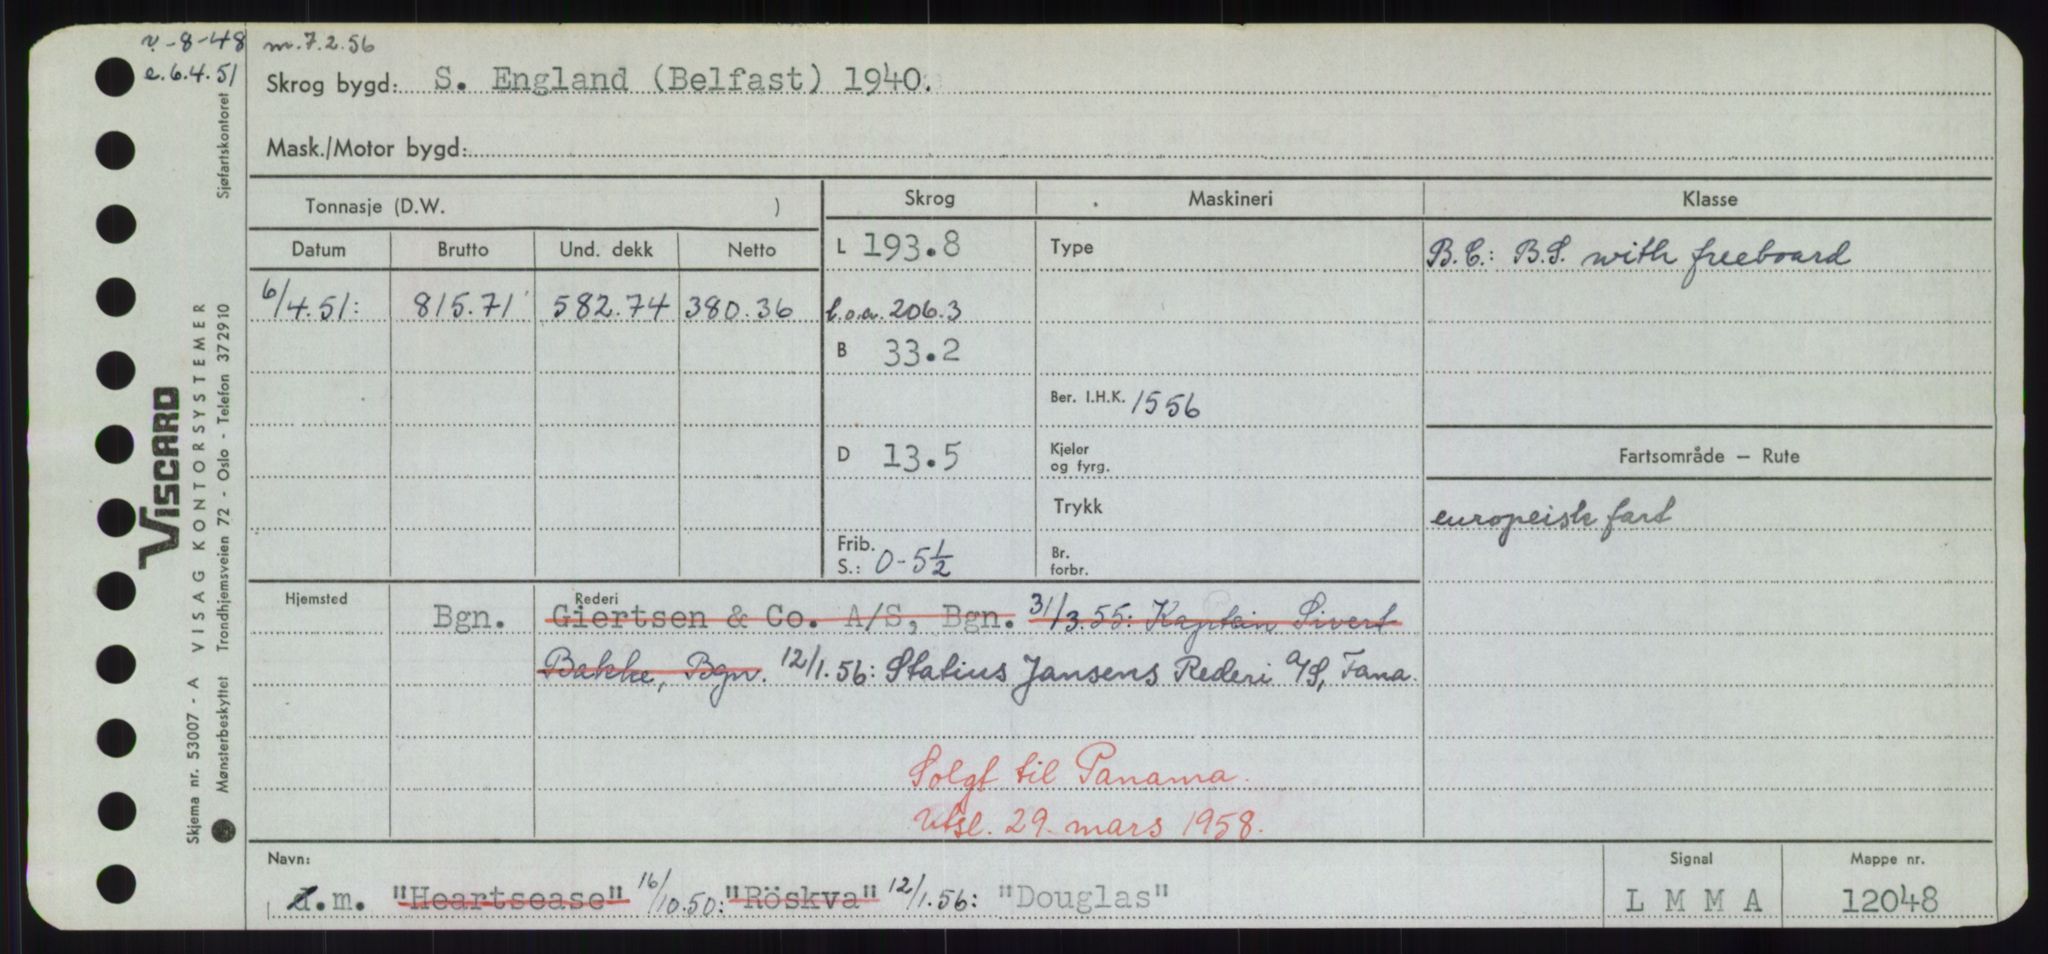 v-8-48 m.7.2.56
e.6.4.51
Skrog bygd: S. England (Belfast) 1940.
Mask./Motor bygd:
Tonnasje (D.W. )
Skrog
Maskineri
Klasse
Datum Brutto Und. dekk Netto
L 193.8
Type
B.C.: B.S. with freeboard
6/4.51: 815.71 582.74 380.36
l.o.a. 206.3
B 33.2
Ber. I.H.K. 1556
D 13.5
Kjeler
og fyrg.
Fartsområde – Rute
Trykk
europeisk fart
Frib.
S.: 0-5½
Br.
forbr.
Hjemsted
Bgn.
Rederi
Giertsen & Co. A/S, Bgn. 31/3.55: Kaptein Sivert
Bakke, Bgn. 12/1.56: Statius Jansens Rederi A/S, Fana.
Solgt til Panama.
Utsl. 29. mars 1958.
Navn:
d.m. "Heartsease" 16/10.50: "Röskva" 12/1.56: "Douglas"
Signal
L M M A
Mappe nr.
12048
Sjøfartskontoret
VISCARD
VISAG KONTORSYSTEMER
Trondhjemsveien 72 - Oslo - Telefon 372910
Skjema nr. 53007 - A
Mønsterbeskyttet